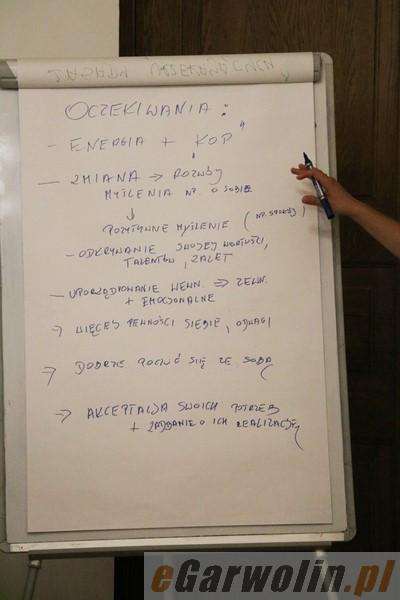 OCZEKIWANIA :
- ENERGIA + KOP
— ZMIANA → ROZWÓJ
MYŚLENIA NP. O SOBIE
↓
POZYTYWNE MYŚLENIE ( NP.
- ODKRYWANIE SWOJEJ WARTOŚCI,
TALENTÓW, ZALET
— UPORZĄDKOWANIE WEWN. ⇒ ZEWN.
+ EMOCJONALNE
→ WIĘCEJ PEWNOŚCI SIEBIE, ODWAGI
→ DOBRZE POCZUĆ SIĘ ZE SOBĄ
→ AKCEPTACJA SWOICH POTRZEB
+ ZADBANIE O ICH REALIZACJĘ
eGarwolin.pl